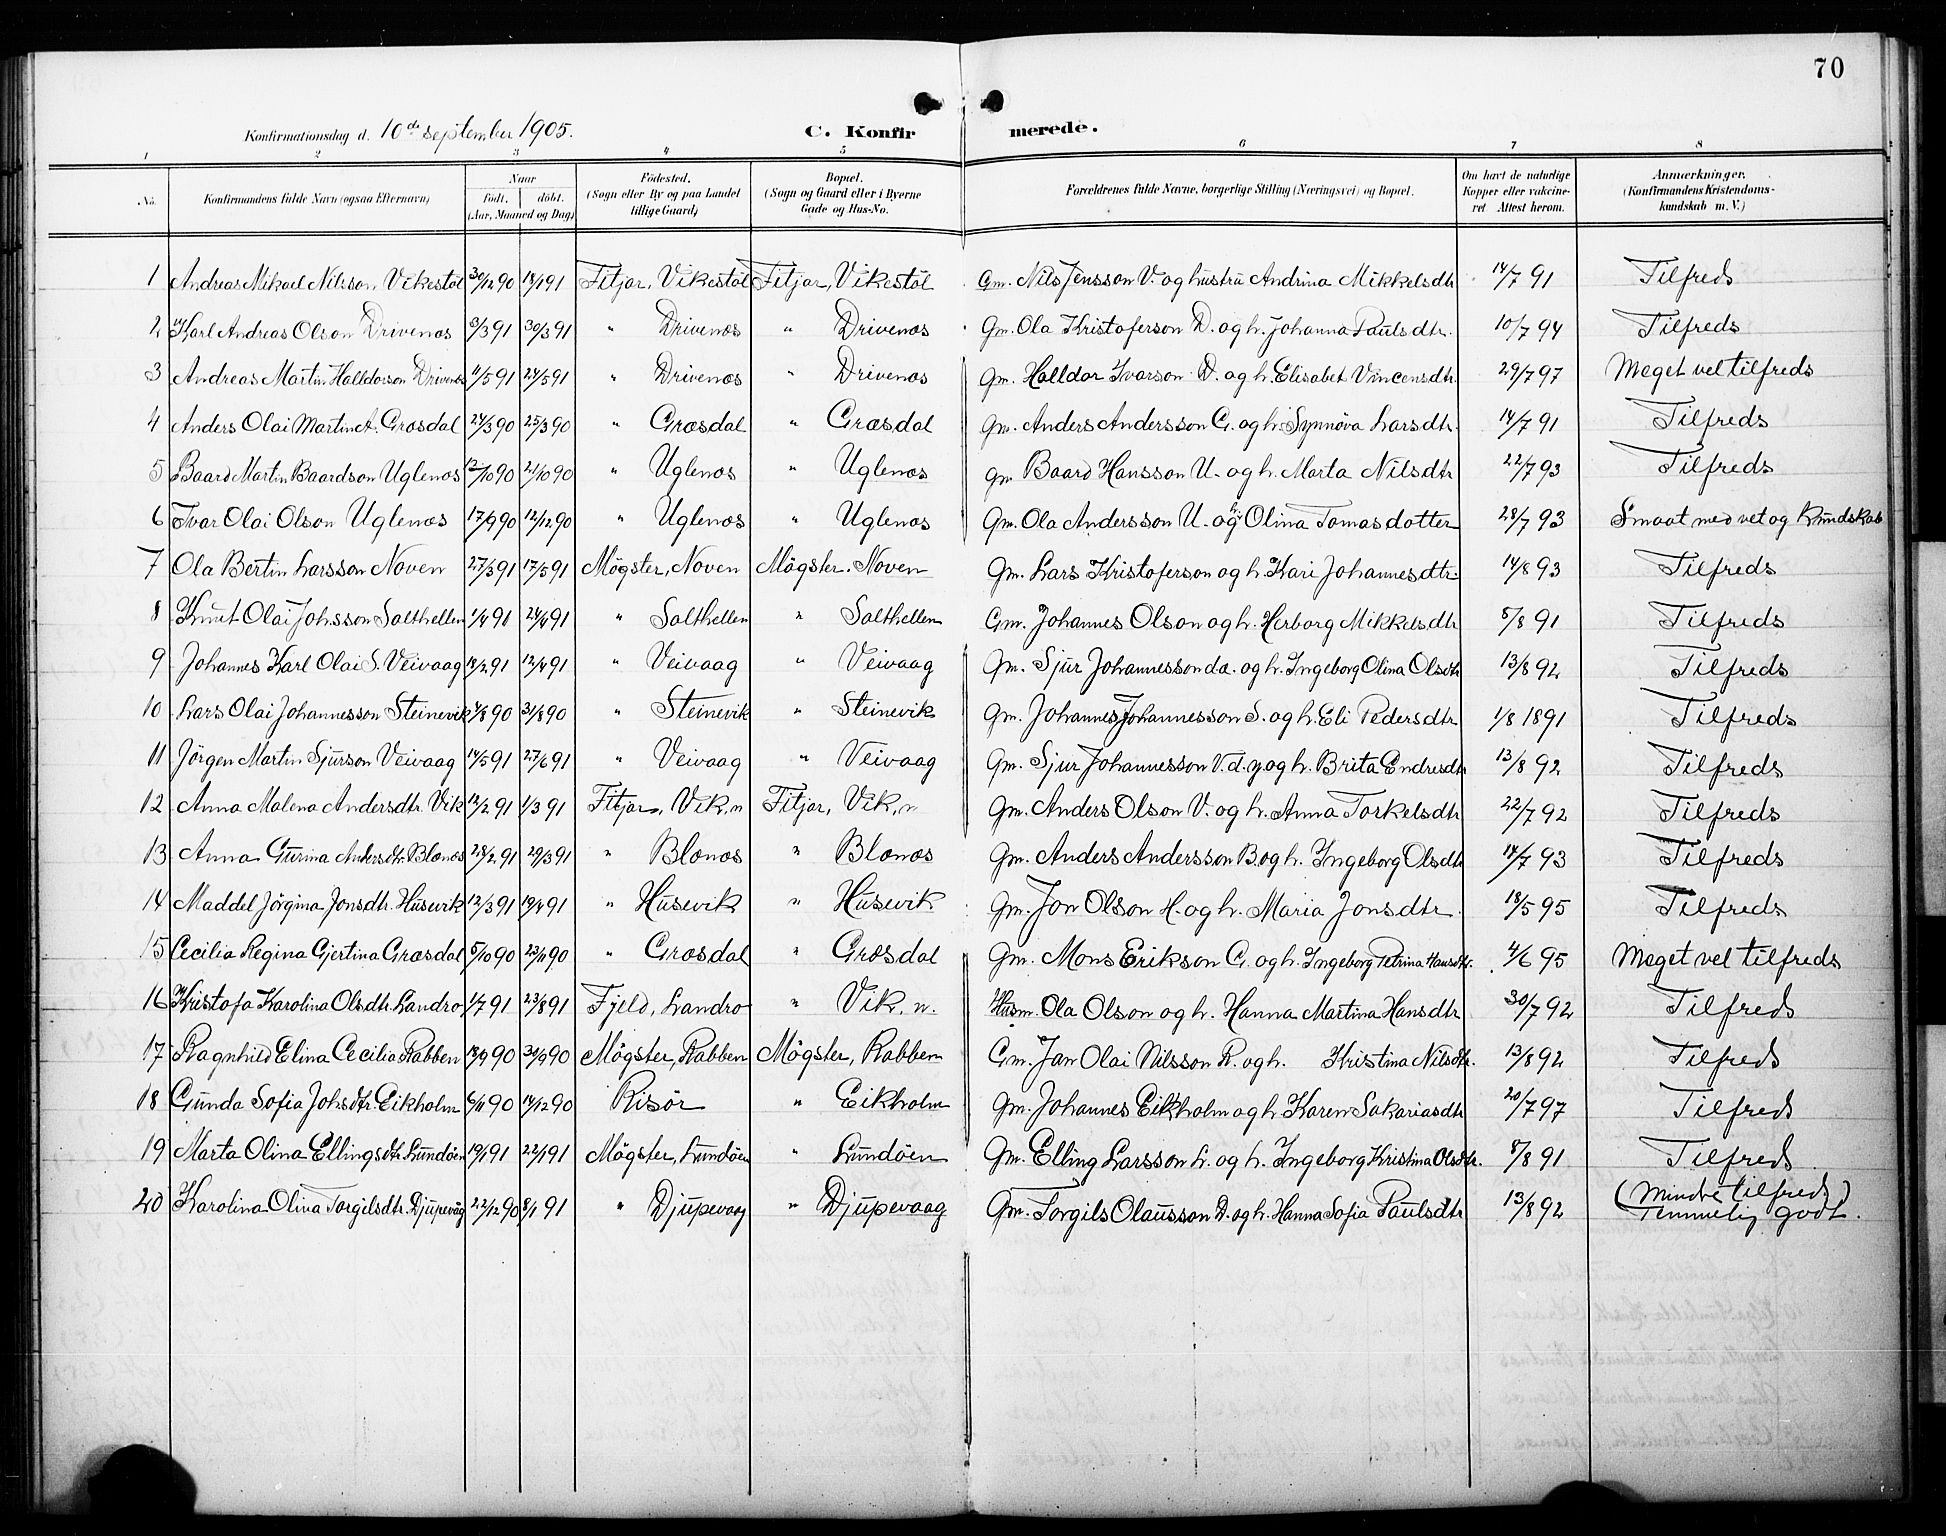 70
Konfirmationsdag d. 10de september 1905. C. Konfirmerede.
1 2 3 4 5 6 7 8
No. Konfirmandens fulde Navn (ogsaa Efternavn) Naar født. døbt. (Aar, Maaned og Dag) Födested. (Sogn eller By og paa Landet tillige Gaard) Bopæl. (Sogn og Gaard eller i Byerne Gade og Hus-No. Forældrenes fulde Navne, borgerlige Stilling (Næringsvei) og Bopæl. Om havt de naturlige Kopper eller vaccineret Attest herom. Anmerkninger. (Konfirmandens Kristendomskundskab m. V.)
1 Andreas Mikael Nilsson, Vikestöl 30/12 90 18/1 91 Fitjar, Vikestöl Fitjar, Vikestöl Gm. Nils Jensson V. og hustru Andrina Mikkelsdtr 14/7 91 Tilfreds
2 Karl Andreas Olson Drivenæs 3/3 91 30/3 91 " Drivenæs " Drivenæs Gm. Ola Kristoferson D. og h. Johanna Paulsdtr. 10/7 94 Tilfreds
3 Andreas Martin Halldorson Drivenæs 11/5 91 24/5 91 " Drivenæs " Drivenæs Gm. Halldor Ivarson D. og h. Elisabet Vincensdtr. 29/7 97 Meget vel tilfreds
4 Anders Olai Martin A. Græsdal 24/3 90 25/3 90 " Græsdal " Græsdal Gm. Anders Andersson G. og h. Synnöva Larsdtr. 14/7 91 Tilfreds
5 Baard Martin Baardson Uglenæs 12/10 90 21/10 90 " Uglenæs " Uglenæs Gm. Baard Hansson U. og h. Marta Nilsdtr 22/7 93 Tilfreds
6 Ivar Olai Olson Uglenæs 17/9 90 12/12 90 " Uglenæs " Uglenæs Gm. Ola Andersson U. og h. Olina Tomasdotter 28/7 93 Smaat med vet og kundskab
7 Ola Bertin Larsson Noven 27/3 91 17/5 91 Mögster, Noven Mögster. Noven Gm. Lars Kristoferson og h. Kari Johannesdtr 14/8 93 Tilfreds
8 Knut Olai Johsson Salthellen 1/4 91 24/4 91 " Salthellen " Salthellen Gm. Johannes Olson og h. Herborg Mikkelsdtr 5/8 91 Tilfreds
9 Johannes Karl Olai S. Veivaag 18/2 91 12/4 91 " Veivaag " Veivaag Gm. Sjur Johannesson d.æ. og h. Ingeborg Olina Olsdtr 13/8 92 Tilfreds
10 Lars Olai Johannesson Steinevik 4/8 90 31/8 90 " Steinevik " Steinevik Gm. Johannes Johannesson S. og h. Eli Pedersdtr 1/8 1891 Tilfreds
11 Jörgen Martin Sjurson Veivaag 14/5 91 27/6 91 " Veivaag " Veivaag Gm. Sjur Johannesson V. d.y. og h. Brita Endresdtr 13/8 92 Tilfreds
12 Anna Malena Andersdtr. Vik 12/2 91 1/3 91 Fitjar, Vik, n Fitjar, Vik, n Gm. Anders Olson V. og h. Anna Torkelsdtr 22/7 92 Tilfreds
13 Anna Gurina Andersdtr. Blænæs 28/2 91 29/3 91 " Blænæs " Blænæs Gm. Anders Andersson B. og h. Ingeborg Olsdtr 14/7 93 Tilfreds
14 Maddel Jörgina Jonsdtr. Husevik 12/3 91 19/4 91 " Husevik " Husevik Gm. Jon Olson H. og h. Maria Jonsdtr. 18/5 95 Tilfreds
15 Cecilia Regina Gjertina Græsdal 5/10 90 23/11 90 " Græsdal " Græsdal Gm. Mons Erikson G. og h. Ingeborg Petrina Hansdtr. 4/6 95 Meget vel tilfreds
16 Kristofa Karolina Olsdtr. Landro 1/7 91 23/8 91 Fjeld, Landro " Vik, n. Husm. Ola Olson og h. Hanna Martina Hansdtr 30/7 92 Tilfreds
17 Ragnhild Elina Cecilia Rabben 18/9 90 30/9 90 Mögster, Rabben Mögster, Rabben Gm. Jan Olai Nilsson R. og h. Kristina Nilsdtr. 13/8 92 Tilfreds
18 Gunda Sofia Johsdtr. Eikholm 6/11 90 14/12 90 Risör " Eikholm Gm. Johannes Eikholm og h. Karen Sakariasdtr 20/7 97 Tilfreds
19 Marta Olina Ellingsdtr. Lundöen 19/1 91 22/1 91 Mögster, Lundöen " Lundöen Gm. Elling Larsson L. og h. Ingeborg Kristina Olsdtr. 8/8 91 Tilfreds
20 Karolina Olina Torgilsdtr. Djupevåg 22/12 90 8/1 91 " Djupevaag " Djupevaag Gm. Torgils Olausson D. og h. Hanna Sofia Paulsdtr 13/8 92 (Mindre tilfreds) Temmelig godt.